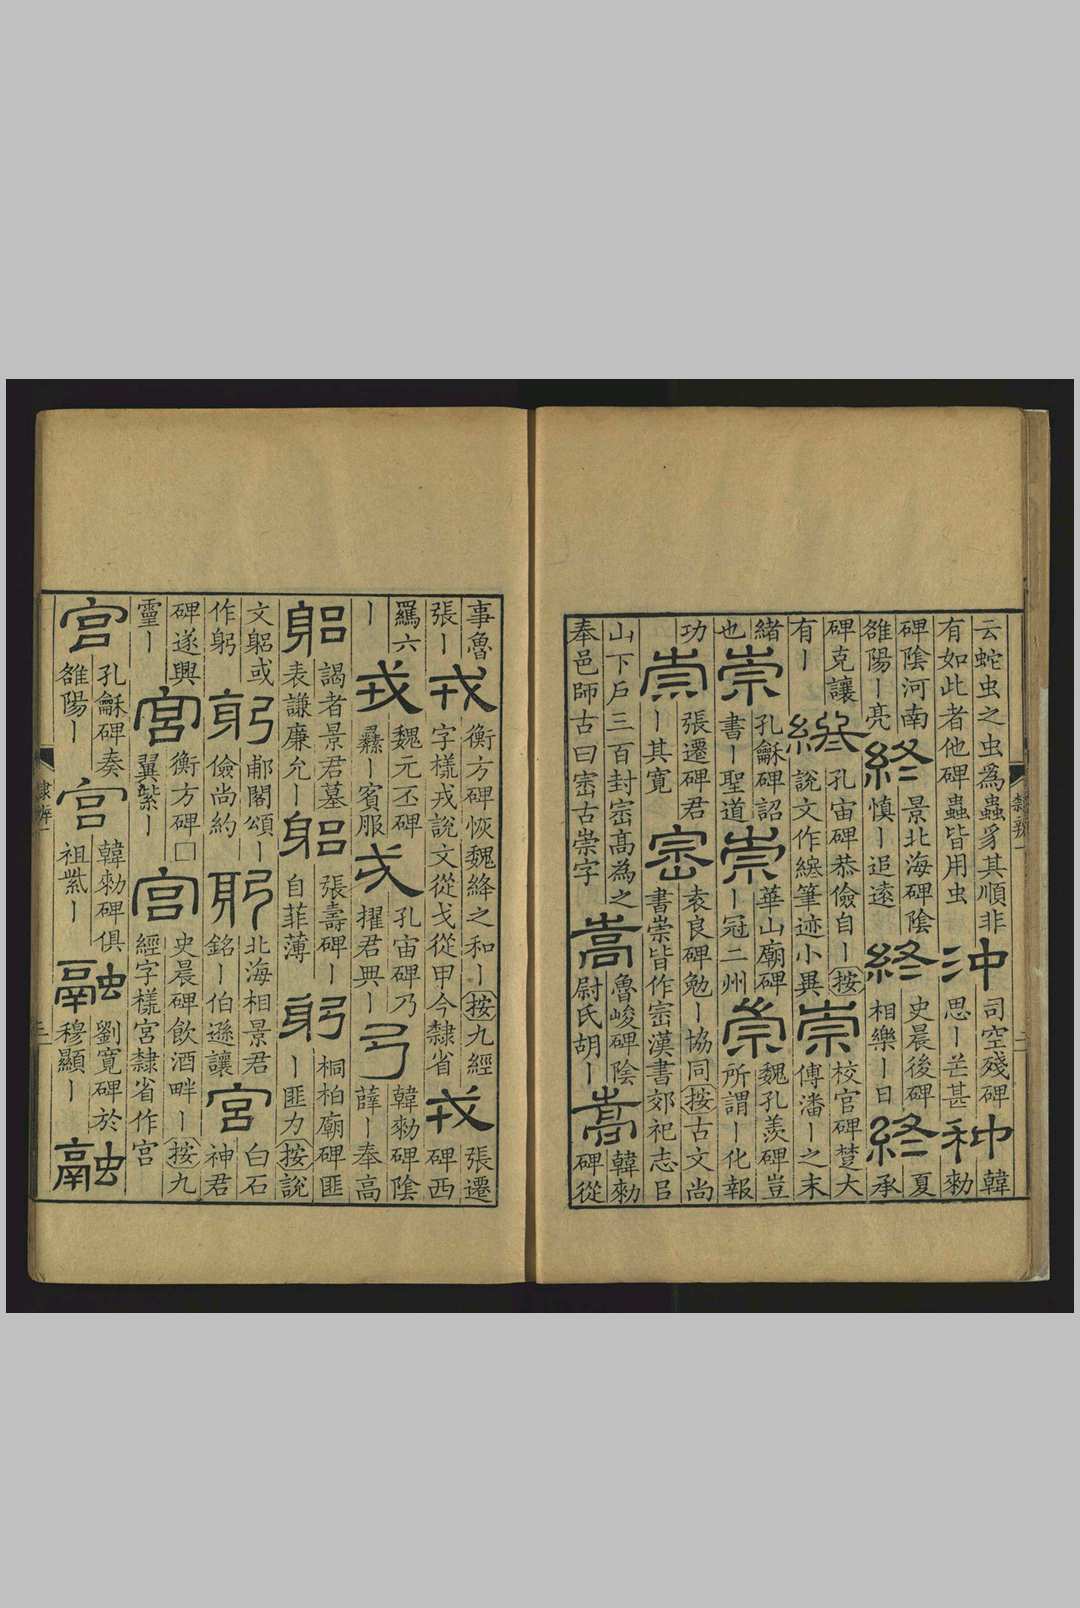 云蛇虫之虫為蟲豸其順非
有如此者他碑蟲皆用虫
沖
司空殘碑
思丨芒甚
种
韓
勑
碑陰河南
雒陽丨亮
終
景北海碑陰
慎丨追遠
終
史晨後碑
相樂丨日
終
夏
承
碑克讓
有丨
孔宙碑恭儉自丨按
說文作繎筆迹小異
崇
校官碑楚大
傅潘丨之末
緒
也
崇
孔龢碑詔
書丨聖道
崇
華山廟碑
丨冠二州
崇
魏孔羨碑豈
所謂丨化報
功
崇
張遷碑君
丨其寬
崈
袁良碑勉丨協同按古文尚
書崇皆作崈漢書郊祀志㠯
山下戶三百封崈高為之
奉邑師古曰崈古崇字
嵩
魯峻碑陰
尉氏胡丨
嵩
韓勑
碑從
隸辨
事魯
張丨
戎
衡方碑恢魏絳之和丨按九經
字樣戎說文從戈從甲今隸省
戎
張遷
碑西
羈六
丨
戎
魏元丕碑
彝丨賓服
戎
孔宙碑乃
擢君典丨
弓
韓勑碑陰
薛丨奉高
躳
謁者景君墓
表謙廉允丨
躳
張壽碑丨
自菲薄
躬
桐柏廟碑匪
丨匪力按說
文躳或
作躬
躬
郙閣頌丨
儉尚約
躬
北海相景君
銘丨伯遜讓
宮
白石
神君
碑遂興
靈丨
宮
衡方碑□
翼紫丨
宮
史晨碑飲酒畔丨按九
經字樣宮隸省作宫
宮
孔龢碑奏
雒陽丨
宮
韓勑碑俱
祖紫丨
融
劉寬碑於
穆顯丨
融